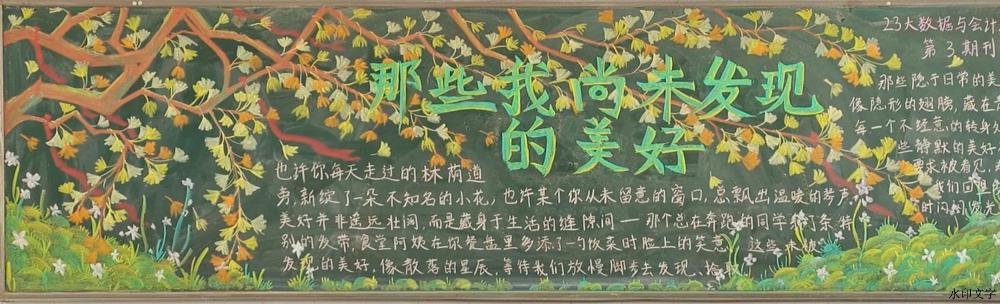 那些我尚未发现
的美好
也许你每天走过的林荫道
旁，新绽了一朵不知名的小花，也许某个你从未留意的窗口，总飘出温暖的琴声
美好并非遥远壮阔，而是藏身于生活的缝隙间——那个总在奔跑的同学 条特
别的发带，食堂阿姨在你餐盘里多添了一勺饭菜时脸上的笑意 这些未被
发现的美好，像散落的星辰，等待我们放慢脚步去发现、拾取
23大数据与会计
第3期刊
那些隐于日常的美
像隐形的翅膀，藏在
每一个不经意的转身
些静默的美好
要求被看见，
我们回
时闪 光
水印文字